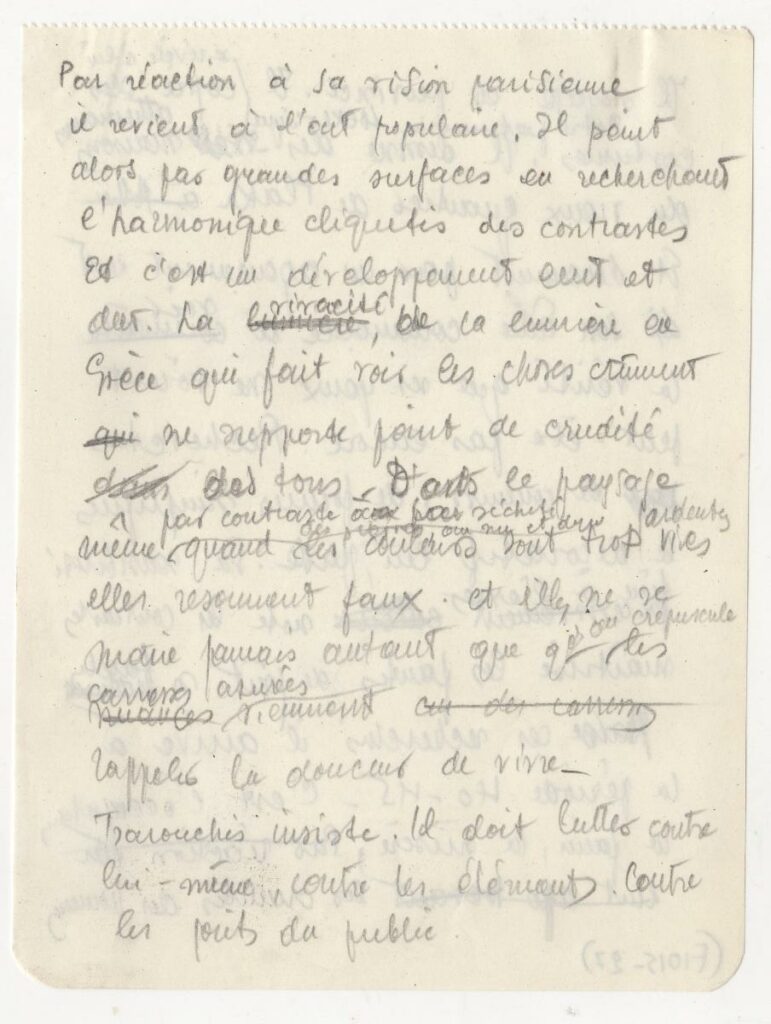 Par réaction à sa vision parisienne
il revient à l'art populaire. Il peint
alors par grandes surfaces en recherchant
l'harmonique cliquetis des contrastes
Et c'est un développement lent et
dur. La lumière vivacité, de la lumière en
Grèce qui fait voir les choses
qui ne supporte point de crudité
dans des tons. Dans le paysage
par contraste ardentes
même, quand les couleurs sont trop vives
elles resonnent faux. et elles ne se
ou crépuscule
marie jamais autant que les
caresses azurées
nuances viennent
rappeler la douceur de vivre_
Tsarouchis insiste. Il doit lutter contre
lui-même, contre les éléments. Contre
les goûts du public.